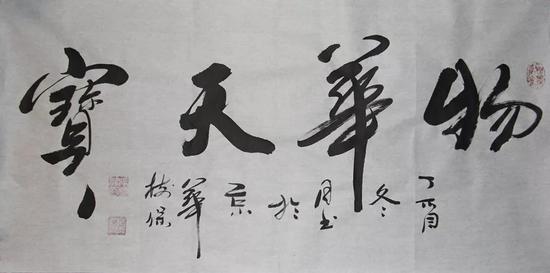 物華天寶
丁酉冬月書於京華樹保